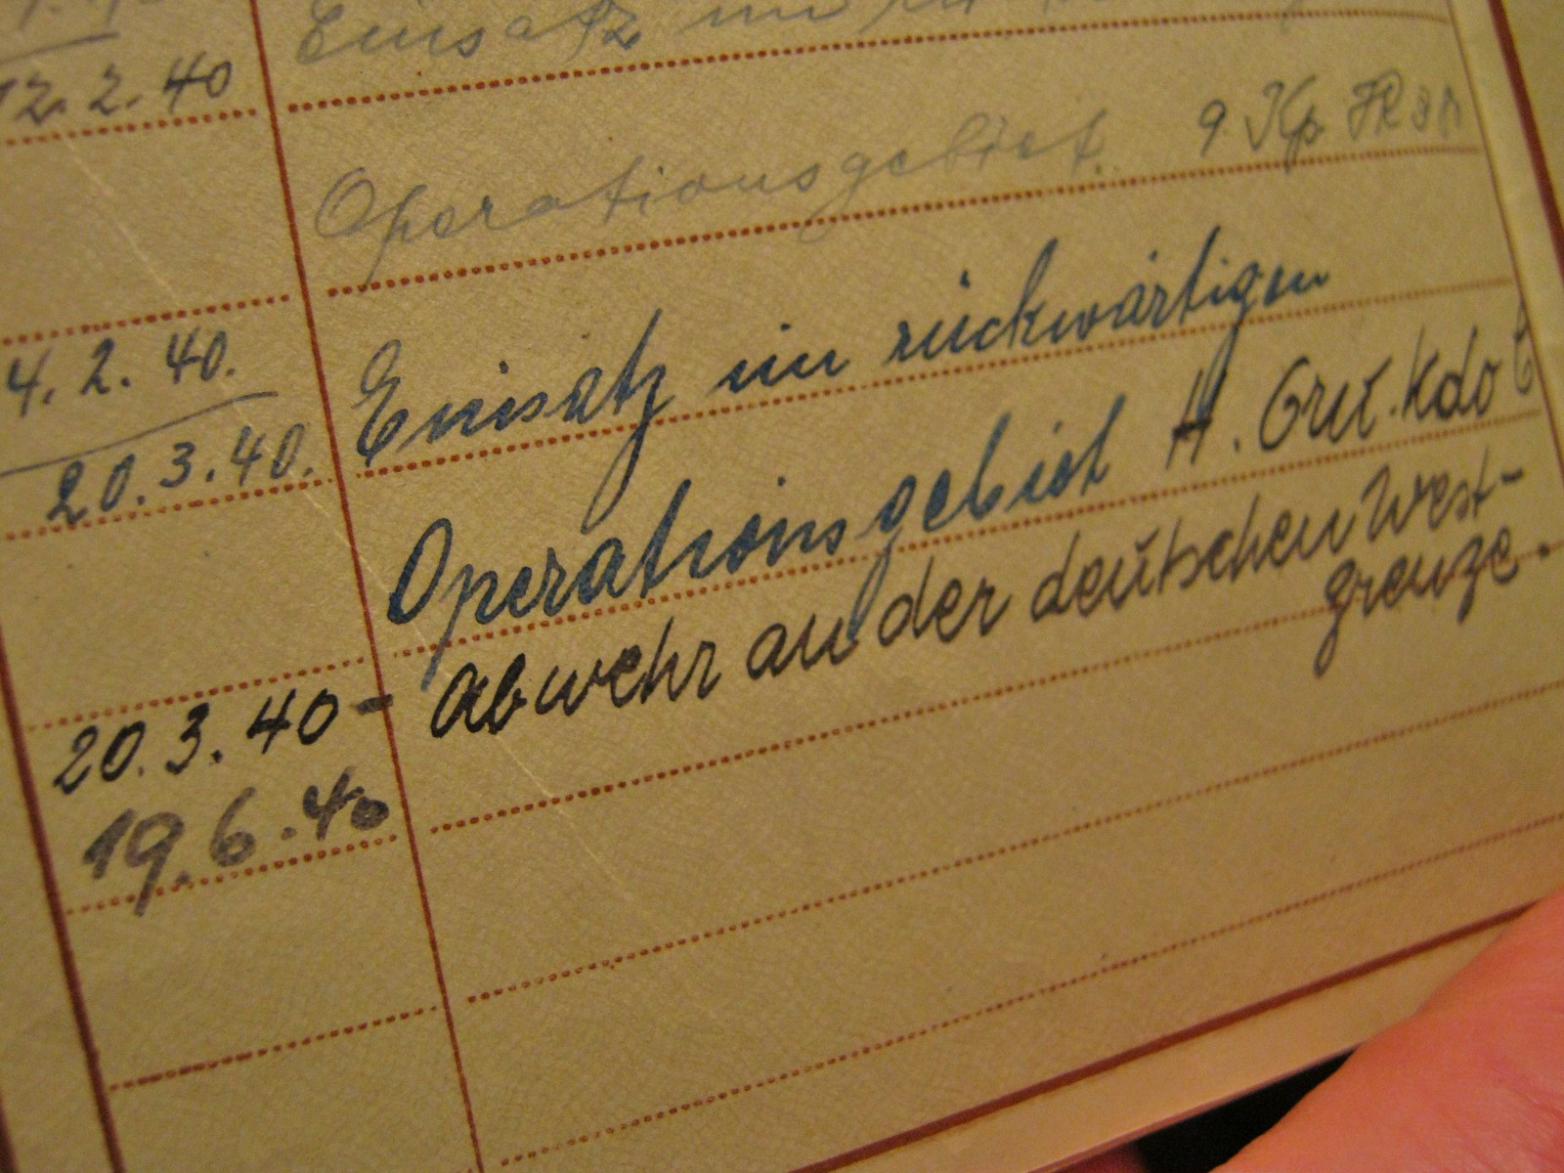 12.2.40 Einsatz im
Operationsgebiet. 9. Kp. JR
4.2.40. Einsatz im rückwärtigen
20.3.40. Operationsgebiet H. Gru. Kdo C
20.3.40- Abwehr an der deutschen West-
grenze.
19.6.40